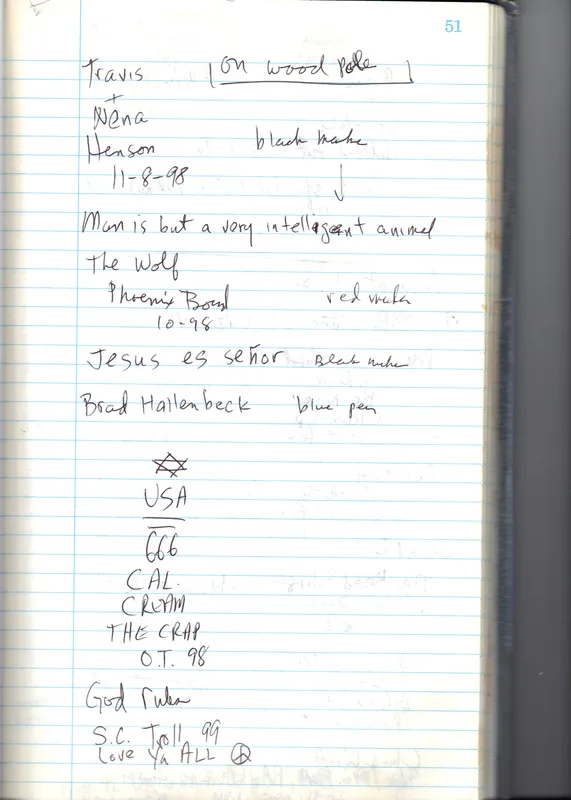 51
Travis on wood pole
+
Nena
Henson black marker
11-8-98
Man is but a very intelligent animal
The Wolf
Phoenix Bound red marker
10-98
Jesus es señor Black marker
Brad Hallenbeck blue pen
USA
666
CAL.
CREAM
THE CRAP
O.T. 98
God rules
S.C. Troll 99
Love Ya ALL